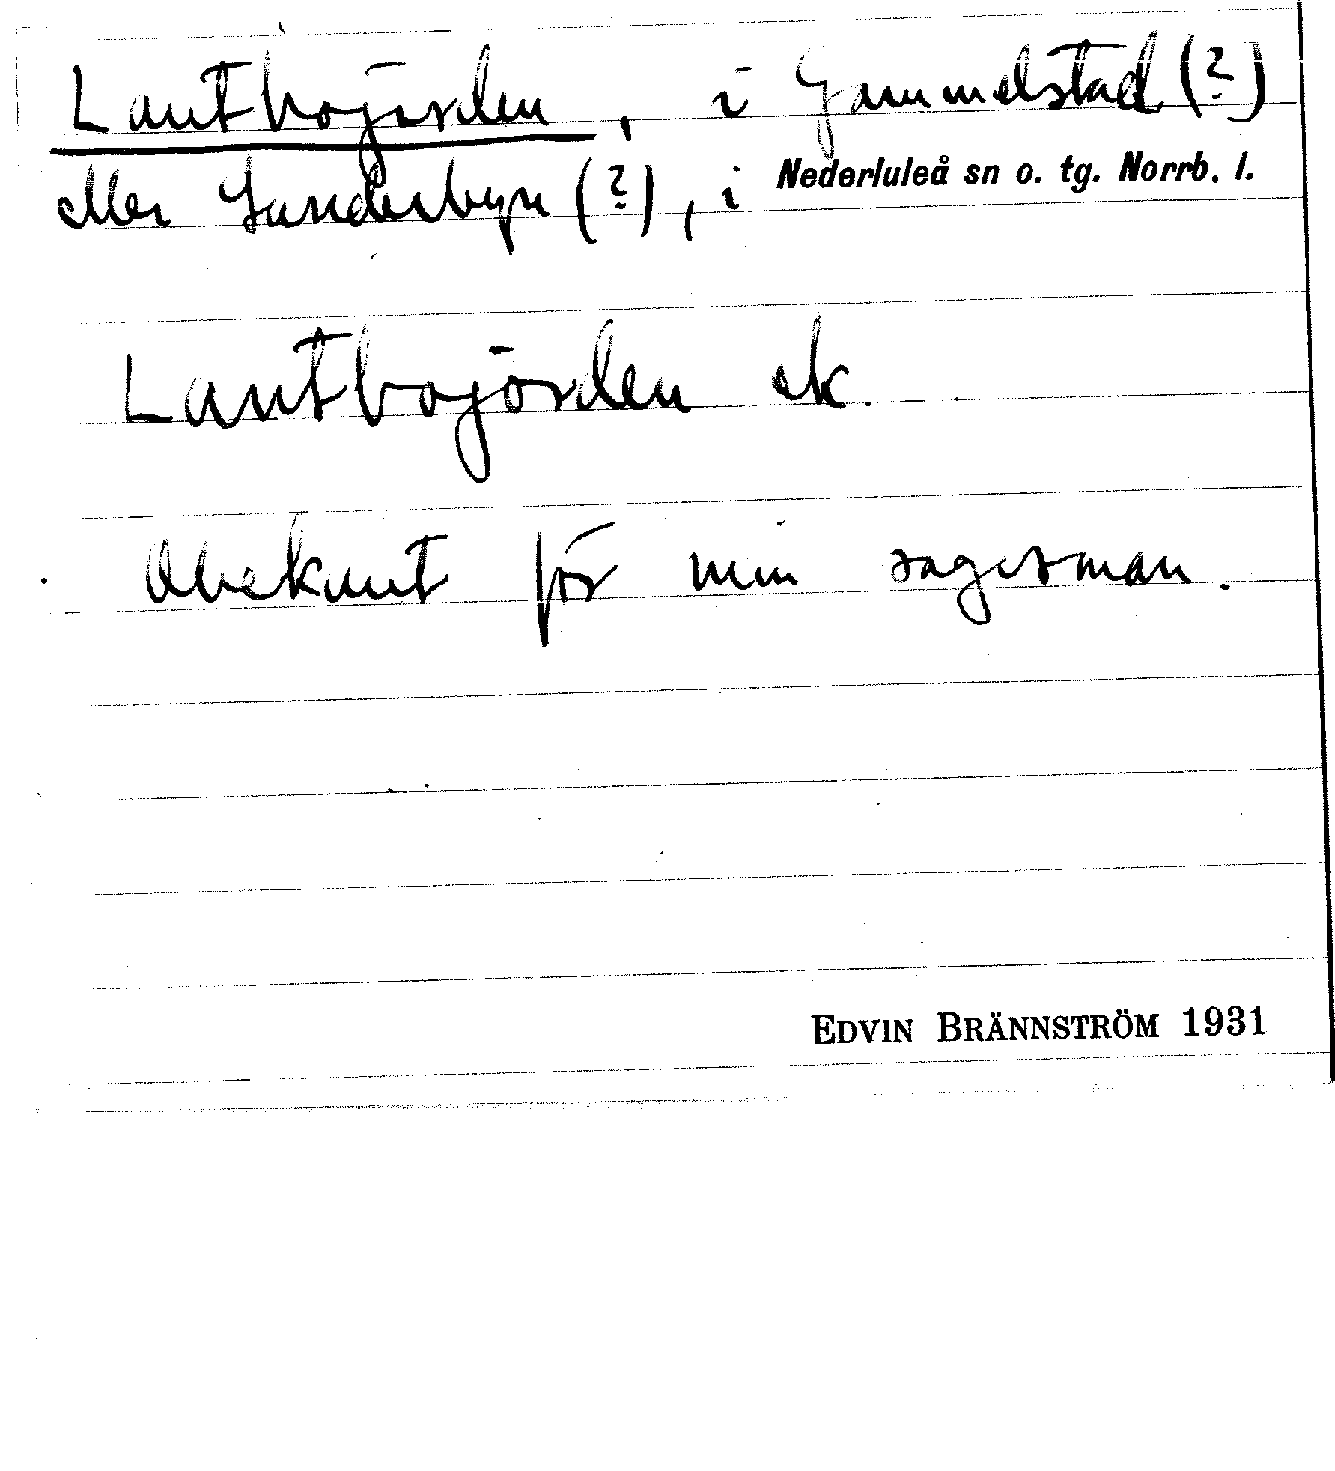 Lantbojorden, i Gammelstad (?)
eller Sunderbyn (?), i Nederluleå sn o. tg. Norrb. l.
Lantbojorden ek.
Obekant för min sagesman.
EDVIN BRÄNNSTRÖM 1931